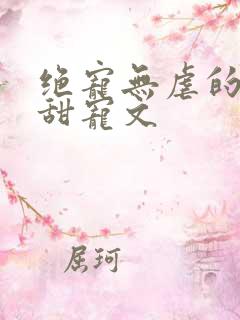 绝寵無虐的
甜寵文
屈珂